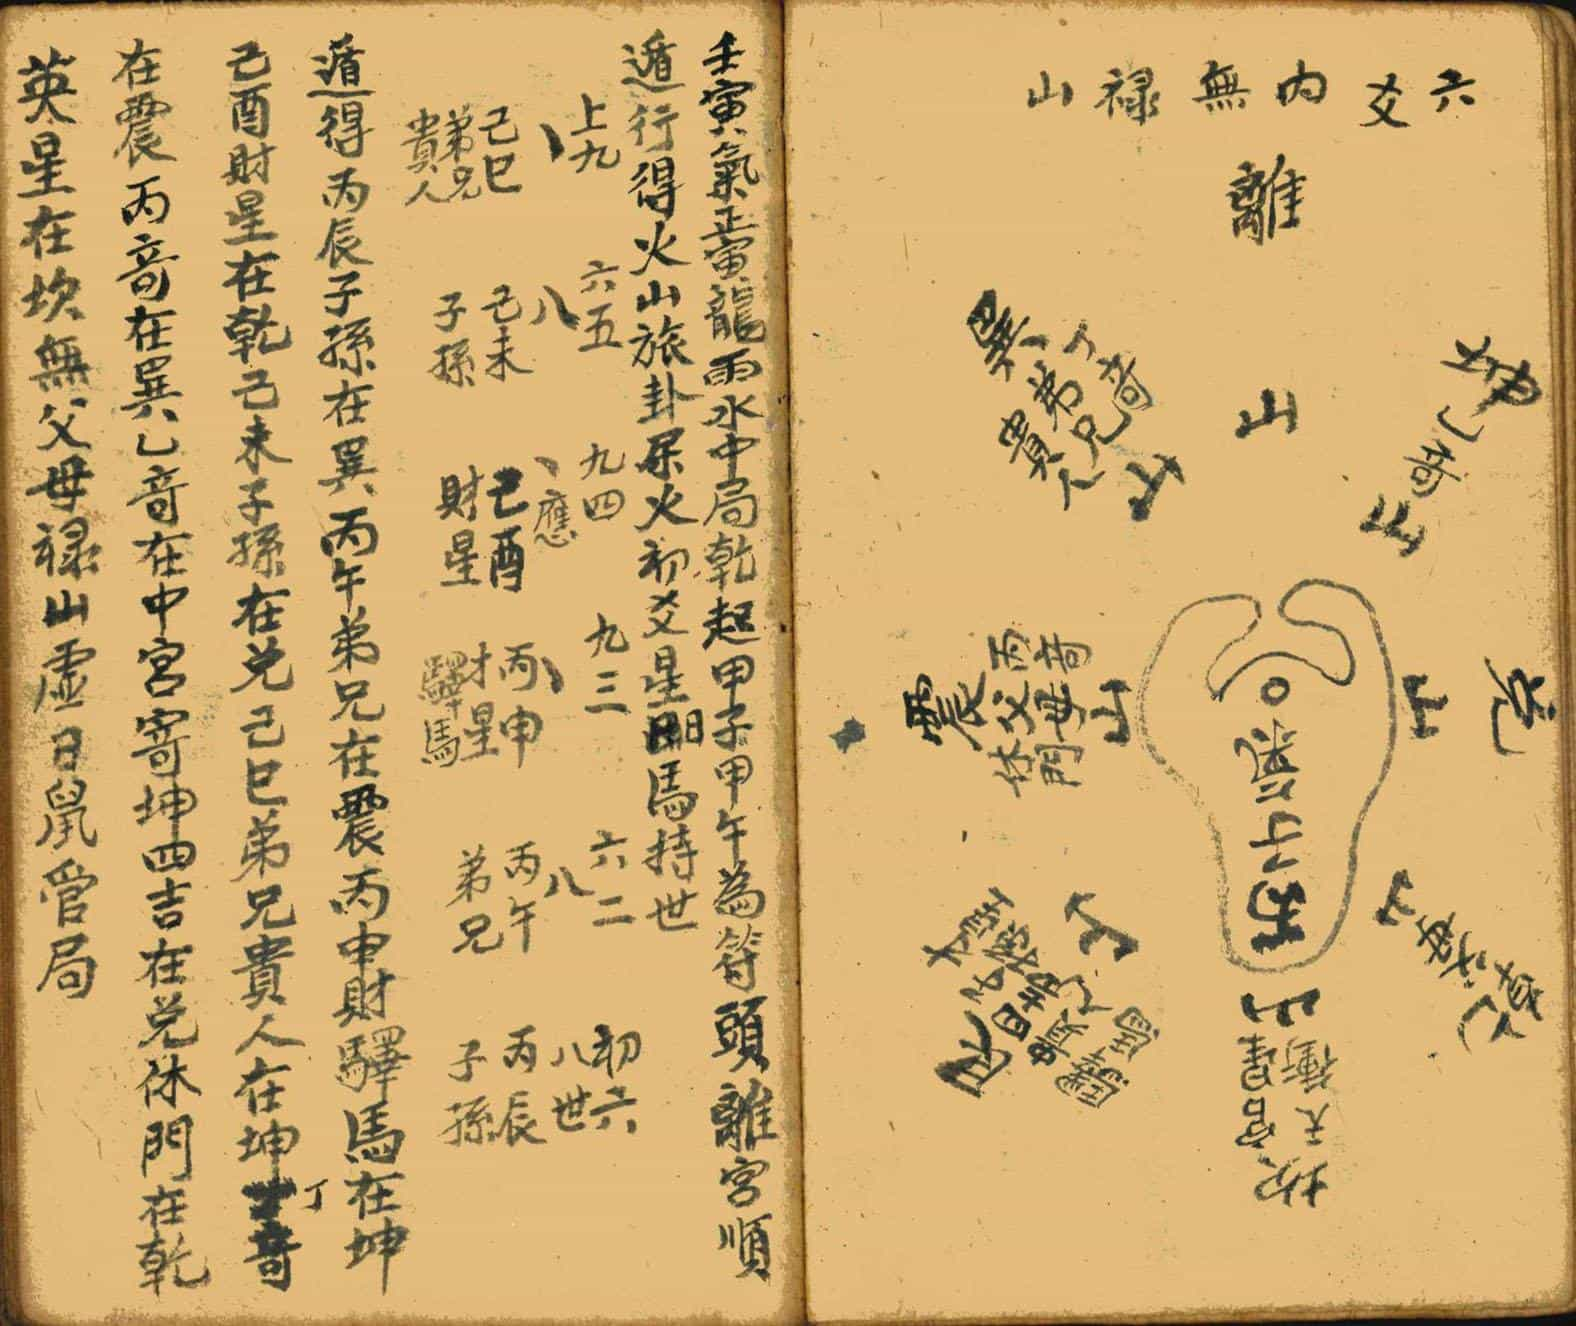 六爻内無禄山
離
山
巽
丁奇
弟兄
貴人
山
坤
乙奇
山
震
丙奇
父母
休門
山
兌
山
山
艮
驛馬
山
乾
父母
山
坎
天衝
官星
壬寅氣正寅龍雨水中局乾起甲子甲午為符頭離宮順
遁行得火山旅卦屬火初爻星日馬持世
上九
六五
九四
九三
六二
初六
、
八
、應
、
八
八世
己巳
己未
己酉
丙申
丙午
丙辰
弟兄
子孫
財星
才星
弟兄
子孫
貴人
驛馬
遁得丙辰子孫在巽丙午弟兄在震丙申財驛馬在坤
己酉財星在乾己未子孫在兌己巳弟兄貴人在坤丁奇
在震丙奇在巽乙奇在中宮寄坤四吉在兌休門在乾
英星在坎無父母禄山虛日鼠管局